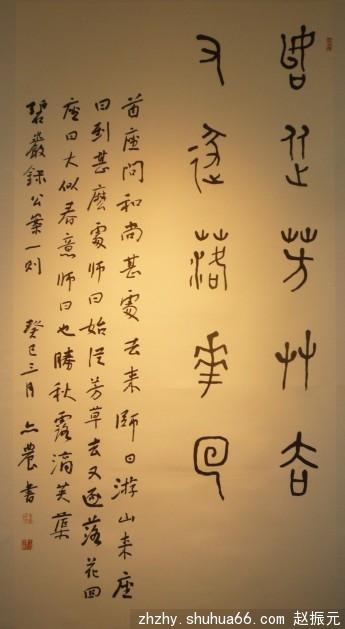 始從芳草去
又逐落花回
首座問和尚甚處去來師曰游山來座
曰到甚麼處師曰始從芳草去又逐落花回
座曰大似春意師曰也勝秋露滴芙蕖
碧巖錄公案一則 癸巳三月 農書
zhzhy.shuhua66.com 赵振元